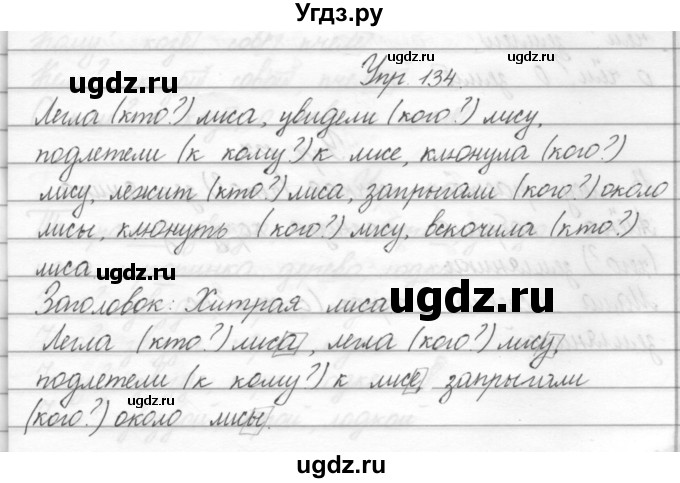 Угдз.ру
Упр. 134
Легла (кто?) лиса, увидели (кого?) лису,
подлетели (к кому?) к лисе, клюнула (кого?)
лису, лежит (кто?) лиса, запрыгали (кого?) около
лисы, клюнуть (кого?) лису, вскочила (кто?)
лиса
Заголовок: Хитрая лиса
Легла (кто?) лиса, легла (кого?) лису,
подлетели (к кому?) к лисе, запрыгали
(кого?) около лисы.
ugdz.ru
ugdz.ru
ugdz.ru
ugdz.ru
ugdz.ru
ugdz.ru